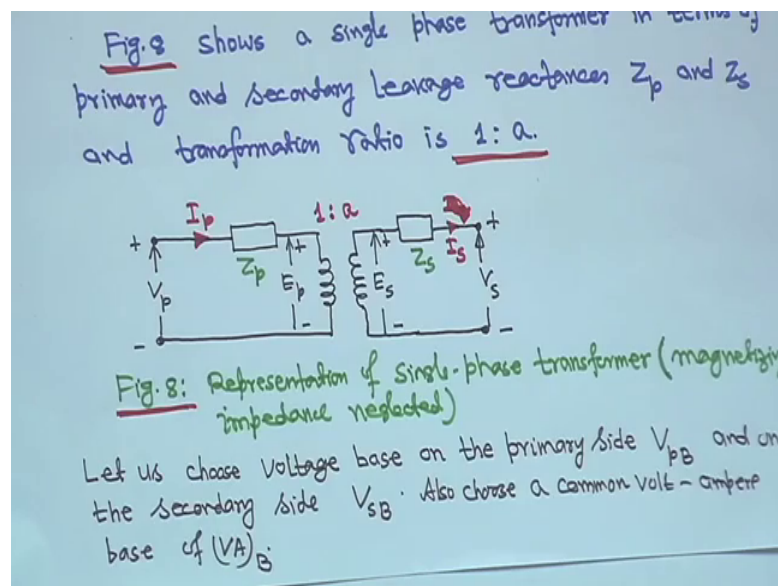 Fig.8 shows a single phase transformer in terms of
primary and secondary Leakage reactances Zp and Zs
and transformation ratio is 1: a.
Ip 1: a Is
+ + + +
Zp Zs
Vp Ep Es Vs
- - - -
Fig. 8: Representation of single-phase transformer (magnetizin
impedance neglected)
Let us choose voltage base on the primary side VpB and on
the secondary side VsB. Also choose a common volt-ampere
base of (VA)B.